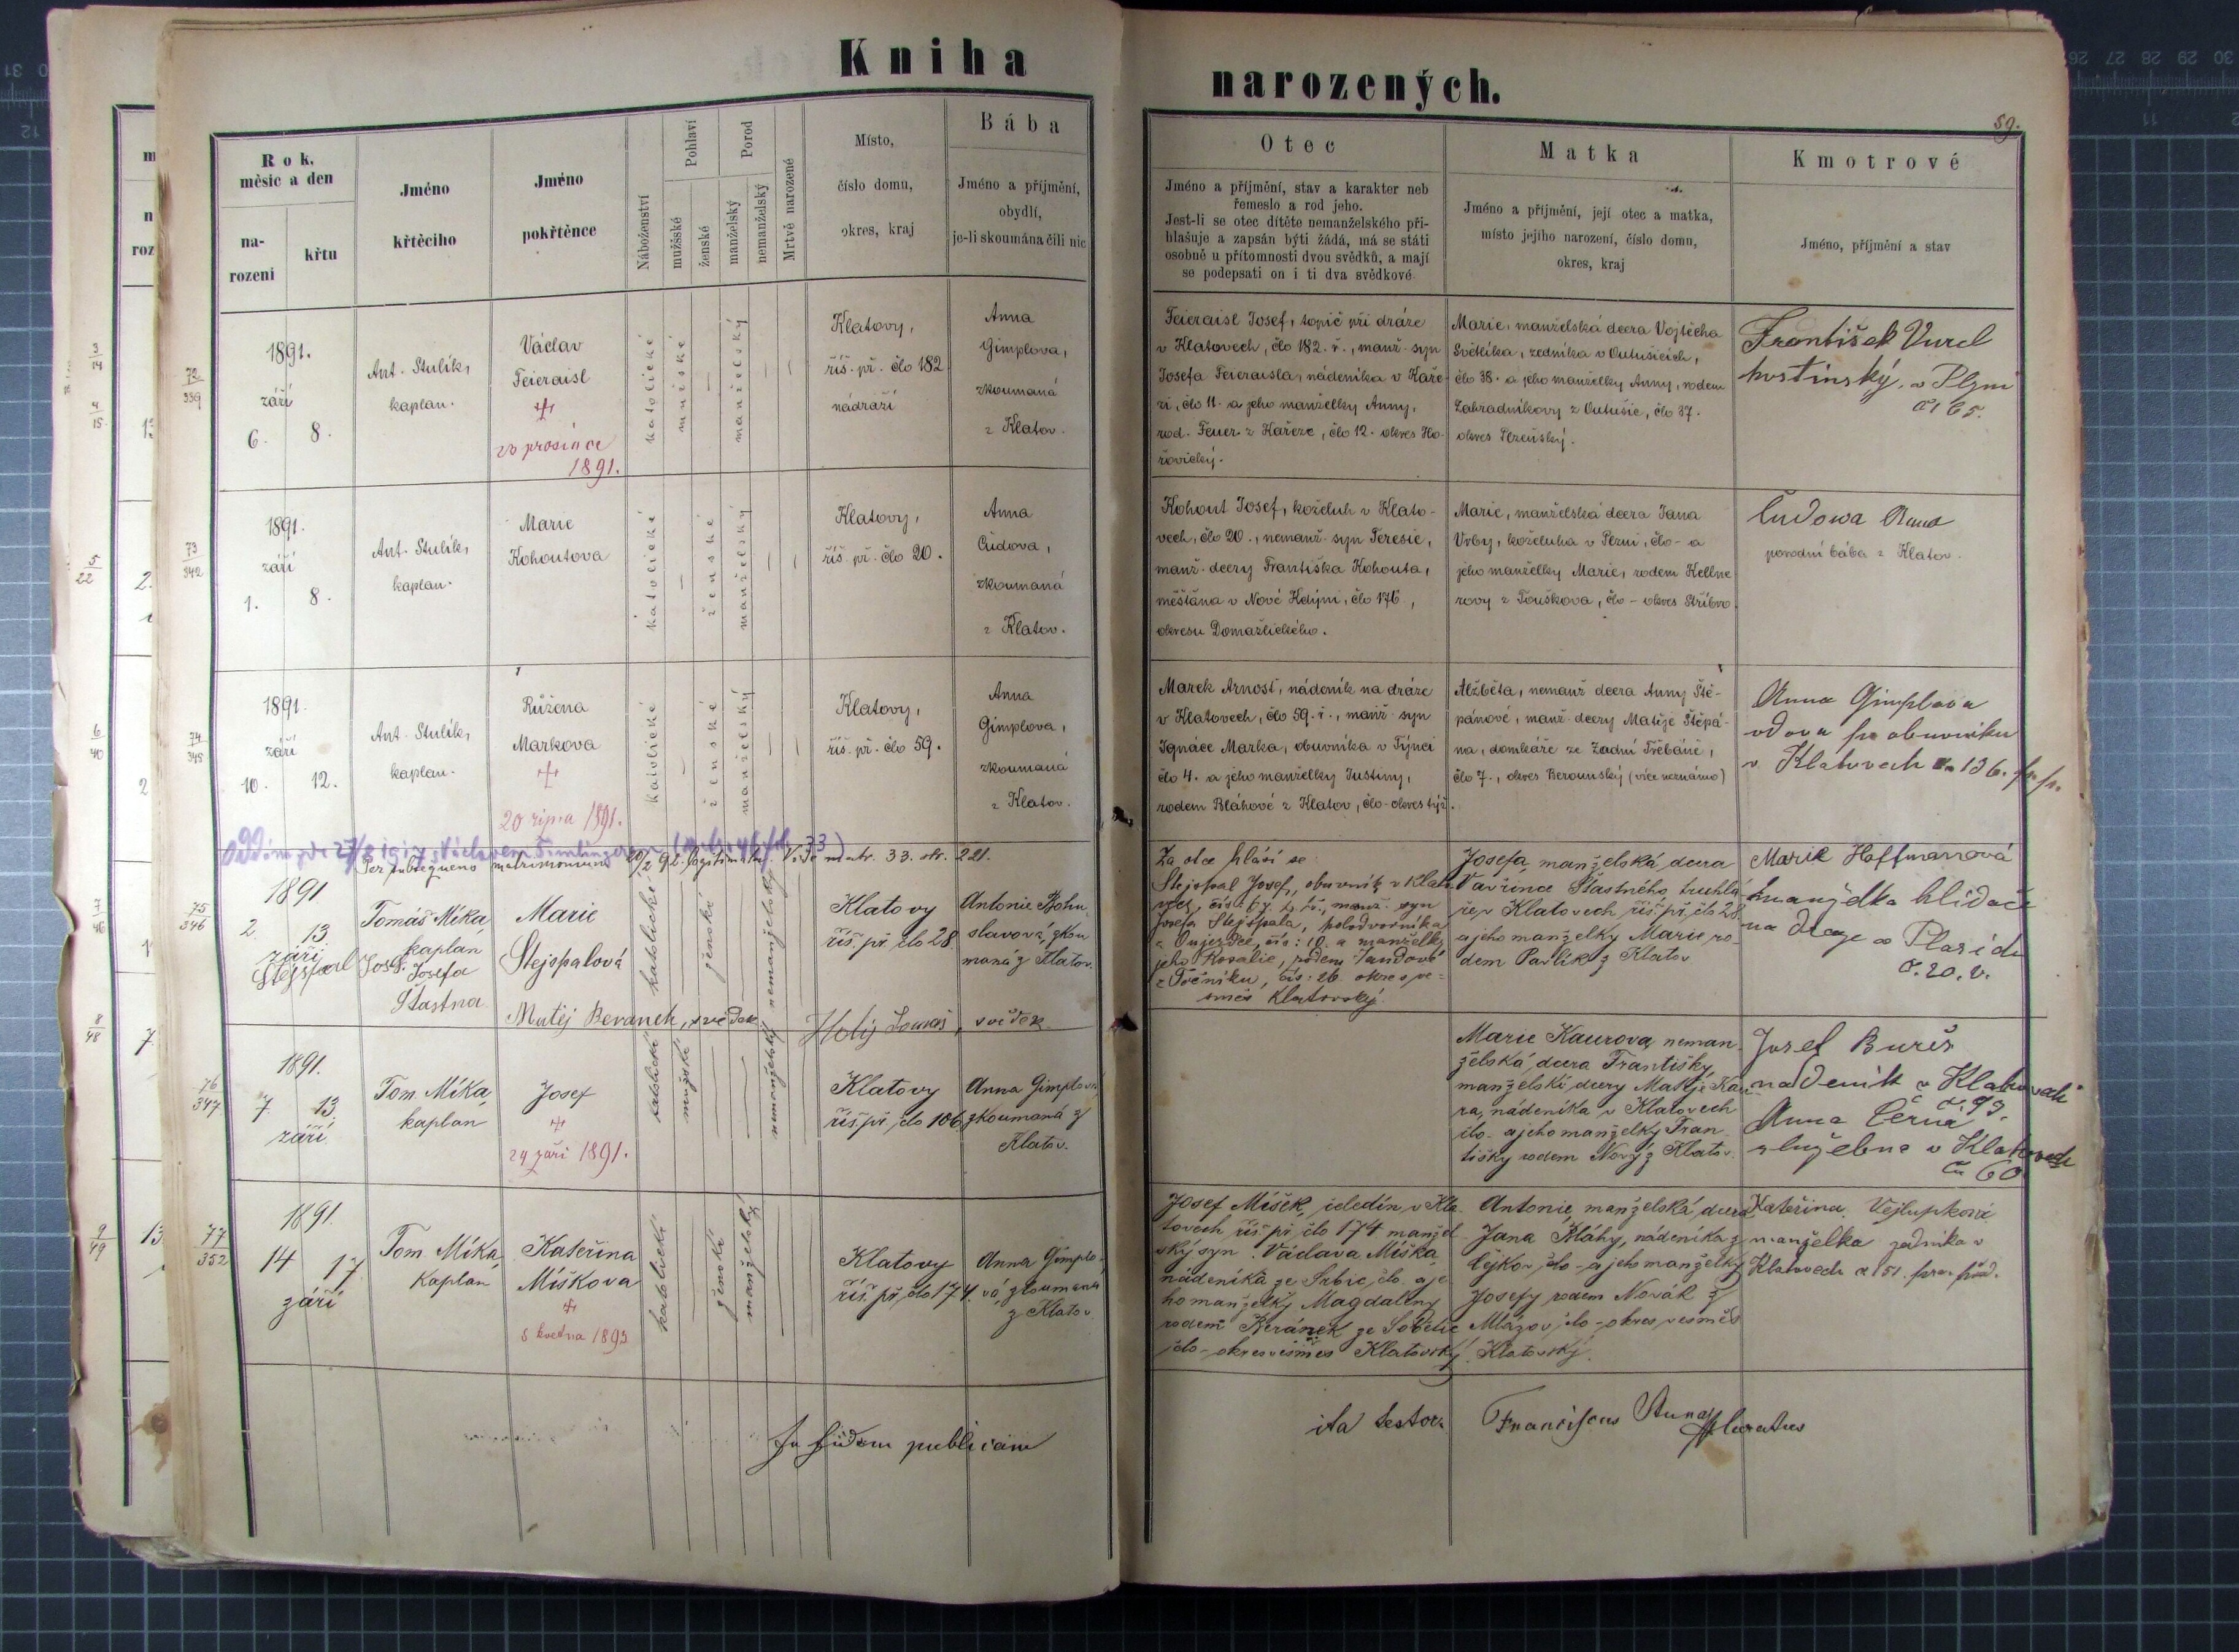 Kniha
narozených.
59.
Rok,
měsíc a den
na-
rozeni
křtu
Jméno
křtěcího
Jméno
pokřtěnce
Náboženství
Pohlaví
mužské
ženské
Porod
manželský
nemanželský
Mrtvě narozené
Místo,
číslo domu,
okres, kraj
Bába
Jméno a příjmění,
obydlí,
je-li skoumána čili nic
Otec
Jméno a příjmění, stav a karakter neb
řemeslo a rod jeho.
Jest-li se otec dítěte nemanželského při-
hlašuje a zapsán býti žádá, má se státi
osobně u přítomnosti dvou svědků, a mají
se podepsati on i ti dva svědkové
Matka
Jméno a příjmění, její otec a matka,
místo jejího narození, číslo domu,
okres, kraj
Kmotrové
Jméno, příjmění a stav
72
339
1891.
září
6. 8.
Ant. Stulík,
kaplan.
Václav
Feieraisl
+
prosince
1891.
katolické
mužské
manželský
Klatovy,
říš. př. člo 182
nádraží
Anna
Gimplova,
zkoumaná
z Klatov.
Feieraisl Josef, topič při dráze
v Klatovech, člo 182. ř., manž. syn
Josefa Feieraisla, nádeníka v Kaře-
zi, člo 11. a jeho manželky Anny,
rod. Feuer z Kařeze, člo 12. okres Ho-
řovický.
Marie, manželská dcera Vojtěcha
Světlíka, zedníka v Outušicích,
člo 38. a jeho manželky Anny, rodem
Zahradníkovy z Outušic, člo 37.
okres Plzeňský.
František Vurel
hostinský v Plzni
65.
73
342
1891.
září
1. 8.
Ant. Stulík,
kaplan.
Marie
Kohoutova
katolické
ženské
manželský
Klatovy,
říš. př. člo 20.
Anna
Čudova,
zkoumaná
z Klatov.
Kohout Josef, koželuh v Klato-
vech, člo 20., nemanž. syn Teresie,
manž. dcery Františka Kohouta,
měšťana v Nové Kdýni, člo 176,
okresu Domažlického.
Marie, manželská dcera Jana
Vrby, koželuha v Plzni, člo - a
jeho manželky Marie, rodem Kellne-
rovy z Touškova, člo - okres Stříbro.
Čudowa Anna
porodní bába z Klatov.
74
345
1891.
září
10. 12.
Ant. Stulík,
kaplan.
Růžena
Markova
+
20 října 1891.
katolické
ženské
manželský
Klatovy,
říš. př. člo 59.
Anna
Gimplova,
zkoumaná
z Klatov.
Marek Arnošt, nádeník na dráze
v Klatovech, člo 59. ř., manž. syn
Ignáce Marka, obuvníka v Týnci
člo 4. a jeho manželky Justiny,
rodem Bláhové z Klatov, člo - okres týž.
Alžběta, nemanž. dcera Anny Ště-
pánové, manž. dcery Matěje Štěpá-
na, domkáře ze Zadní Třebáně,
člo 7., okres Berounský (více neznámo)
Anna Gimplova
vdova po obuvníku
v Klatovech 136.
Per subsequens matrimonium 20/2 92 legitimata. Vide matr. 33. str. 221.
75
346
1891
2 13
září
Tomáš Míka,
kaplan
Marie
Stejspalová
katolické
ženské
nemanželský
Klatovy
říš. př. člo 28
Antonie Bohu-
slavová, zkou-
maná z Klatov.
Stejspal Josef
Josefa
Šťastna
Matěj Beranek, svědek
Holý Tomáš, svědek
Za otce hlásí se
Stejspal Josef, obuvník v Klato-
vech, manž. syn
Josefa Stejspala, polodvorníka
z Oujezdce, čís: 10. a manželky
jeho Rosalie, rodem Jandové
z Točníku, čís: 26 okres ve-
směs Klatovský.
Josefa, manželská dcera
Vavřince Šťastného truhlá-
ře v Klatovech, říš. př. člo 28
a jeho manželky Marie ro-
dem Pavlík z Klatov
Marie Hoffmannová
manželka hlídače
na dráze
č. 20.
76
347
1891.
7 13.
září
Tom. Míka,
kaplan
Josef
+
24 září 1891.
katolické
mužské
nemanželský
Klatovy
říš. př. člo 106
Anna Gimplová,
zkoumaná z
Klatov.
Marie Kaurova, neman-
želská dcera Františky,
manželské dcery Matěje Kau-
ra, nádeníka v Klatovech
člo - a jeho manželky Fran-
tišky rodem Nový z Klatov.
Josef Bureš
nádeník v Klatovech
č. 99.
Anna Černá
služebna v Klatovech
60
77
352
1891.
14 17
září
Tom. Míka,
kaplan
Kateřina
Míškova
+
5 května 1893
katolické
ženské
manželský
Klatovy
říš. př. člo 174.
Anna Gimplo-
vá, zkoumaná
z Klatov.
Josef Míšek, čeledín v Kla-
tovech, říš. př. člo 174 manžel-
ský syn Václava Míška,
nádeníka ze Srbic, člo - a je-
ho manželky Magdaleny
rodem Beránek ze Sobětic
člo - okres vesměs Klatovský.
Antonie, manželská dcera
Jana Bláhy, nádeníka z
Čejkov, člo - a jeho manželky
Josefy rodem Novák z
Mlázov, člo - okres vesměs
Klatovský.
Kateřina Vejlupková
manželka zedníka v
Klatovech č 151.
In fidem publicam
ita testor:
Franciscus